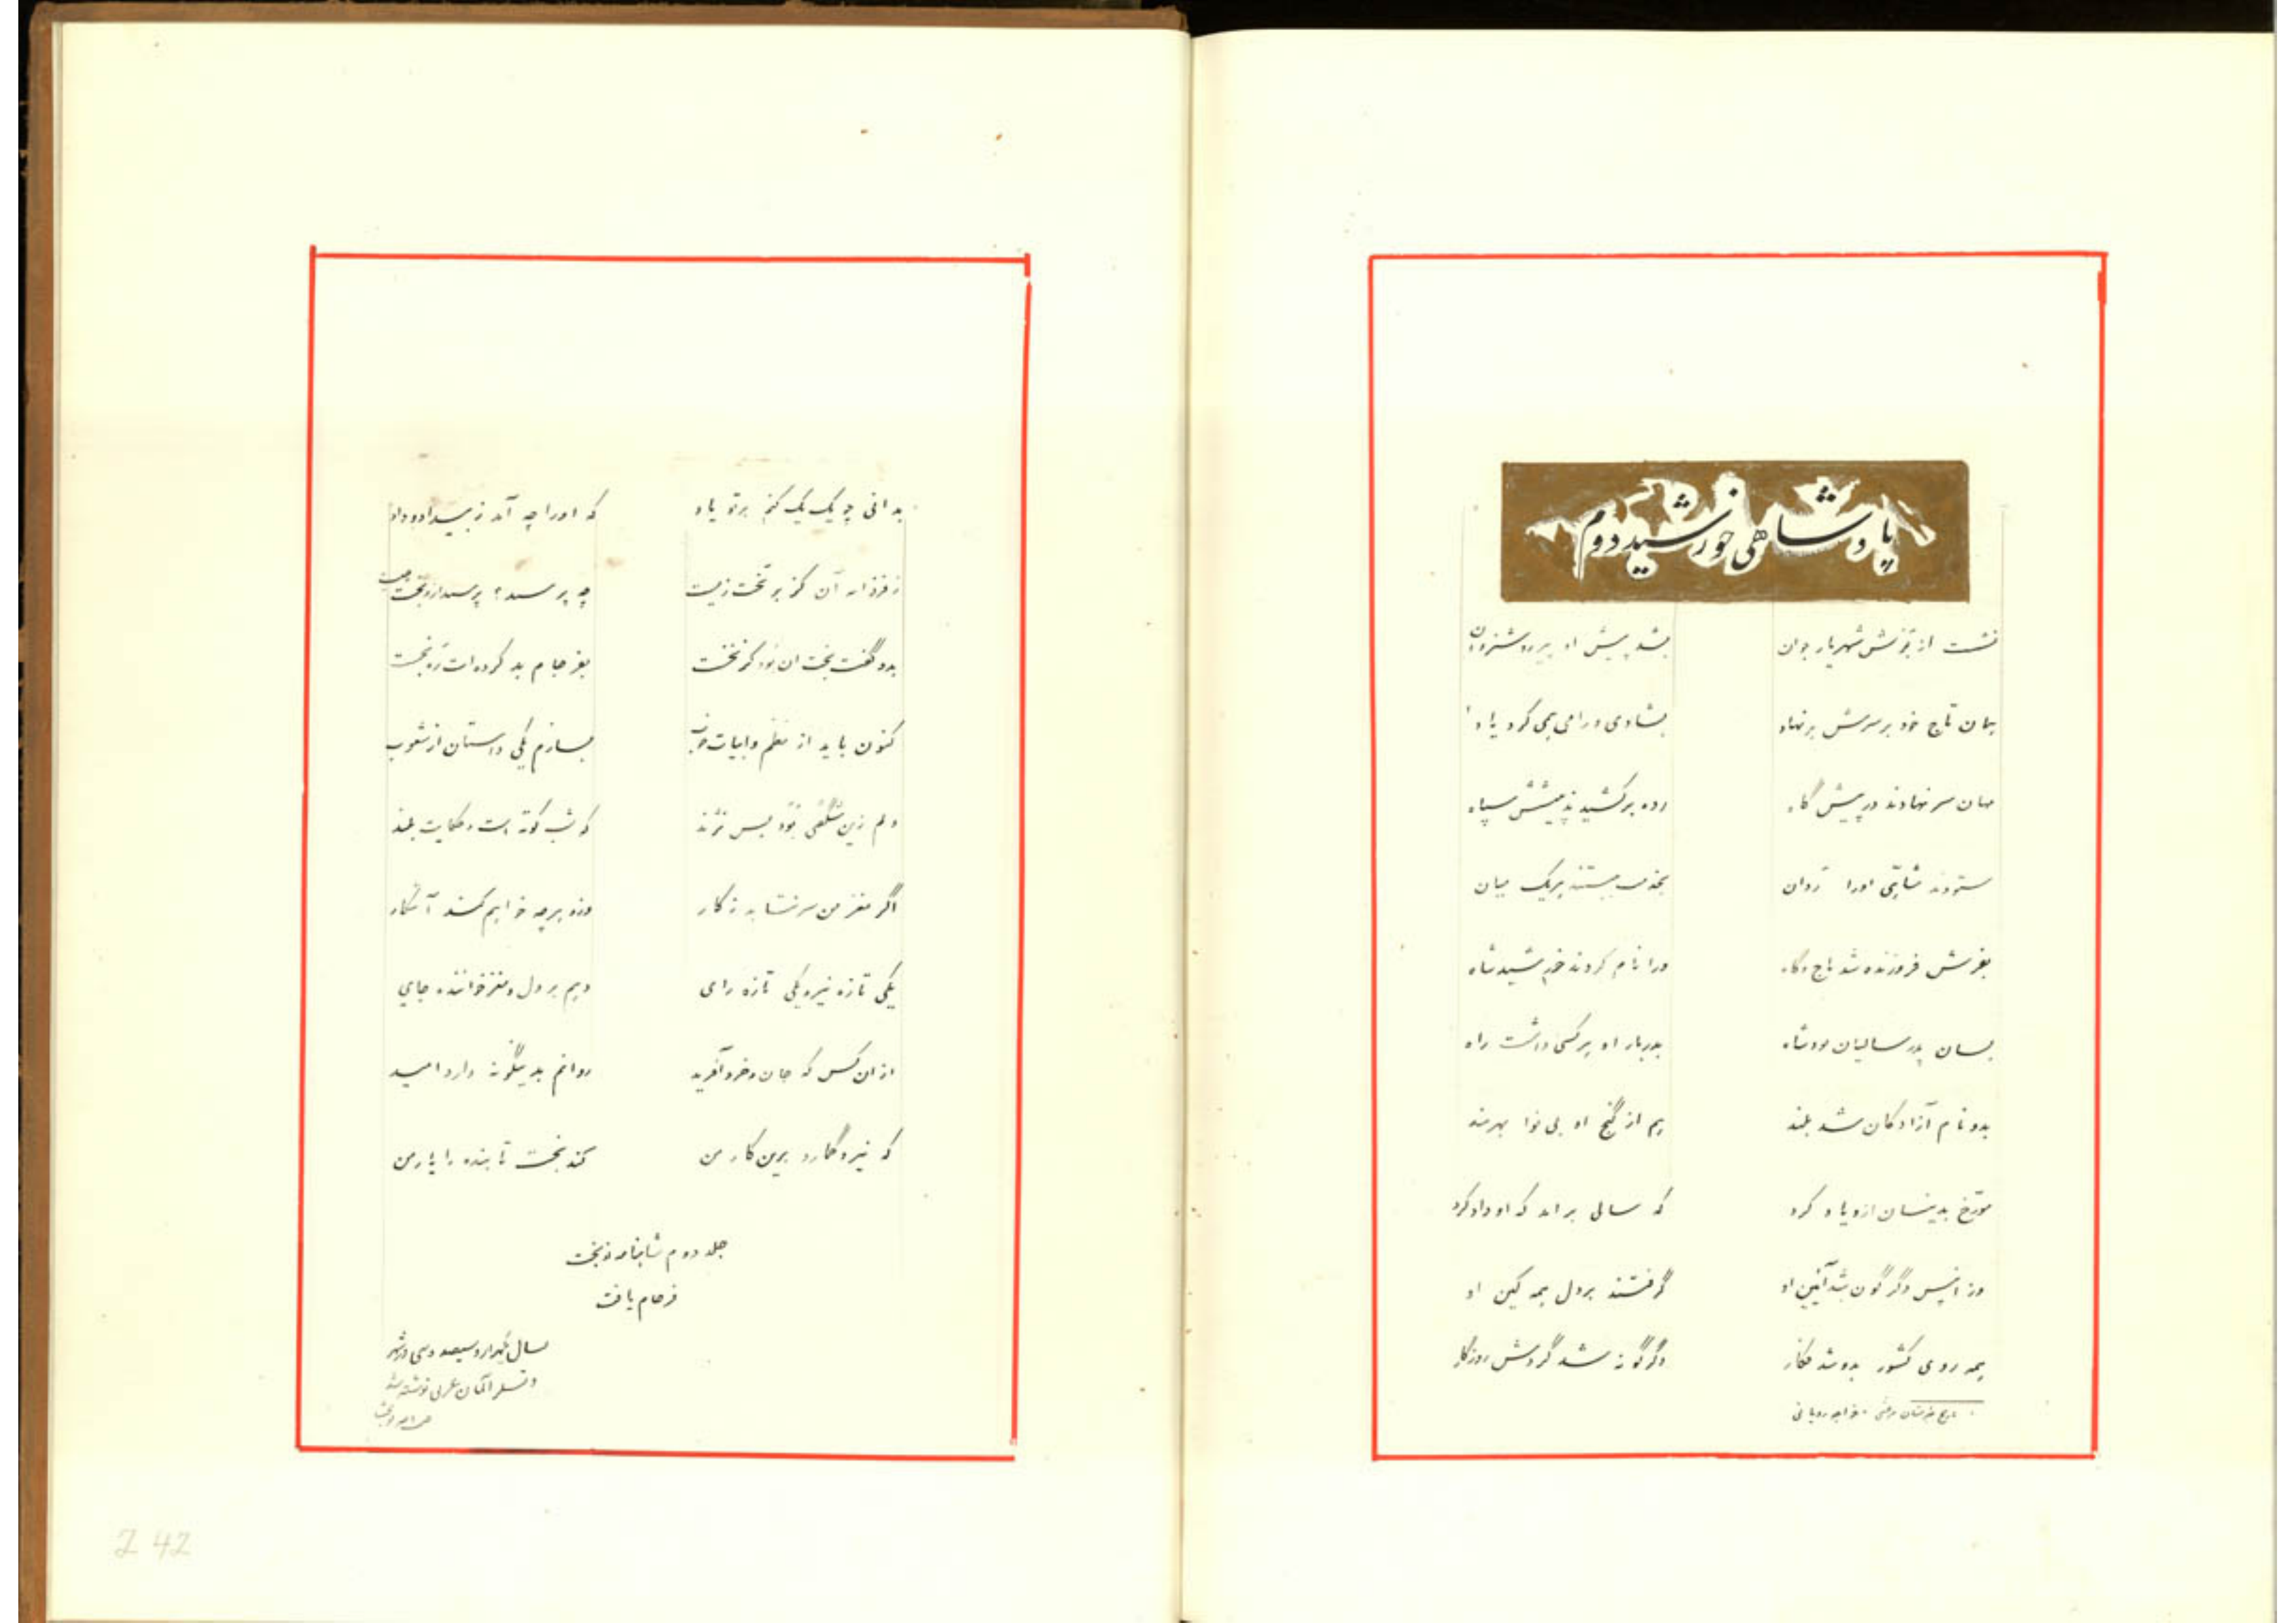 پادشاهی خورشید دوم
نشست از برش شهریار جوان بشد پیش او پیر روشنروان
همان تاج خود بر سرش بر نهاد بشادی ورا می همی کرد یاد
مهان سر نهادند در پیش گاه رده بر کشید پیشش سپاه
ستودند شاهی او را روان بخدمت ببستند هر یک میان
بفرش فروزنده شد تاج و گاه ورا نام کردند خورشید شاه
بسان پدر سالیان بود شاه بدربار او هر کسی داشت راه
بدو نام آزادگان شد بلند هم از گنج او بی نوا بهرمند
مورّخ بدینسان ازو یاد کرد که سالی براند که او داد کرد
وز آنپس دگرگون شد آئین او گرفتند بر دل همه کین او
همه روی کشور بدو شد دگرگونه شد گردش روزگار
تاریخ خواجه رویانی
بدانی چو یک یک کنم بر تو یاد که او را چه آمد ز بیداد و داد
ز فرزانه آن کز بر تخت زیست چه پرسد؟ بپرسد از و بخت چیست
بدو گفت بخت آن بود کز نخست بفرجام بد کرده‌ات
کنون باید از نظم و ابیات خوب بسازم یکی داستان از
دلم زین شگفتی بود بس نژند که شب کوته است و حکایت بلند
اگر مغز من سر نتابد ز کار وزو هر چه خواهم کند آشکار
یکی تازه نیرو یکی تازه رای دهم بر دل و مغز خواننده جای
از ان کس که جان و خرد آفرید روانم بدینگونه دارد امید
که نیرو گمارد برین کار من کند بخت تابنده را یار من
جلد دوم شاهنامه نوبخت
فرجام یافت
بسال یکهزار و سیصد و سی در شهر
دوسلر آلمان غربی نوشته شد
نوبخت
242